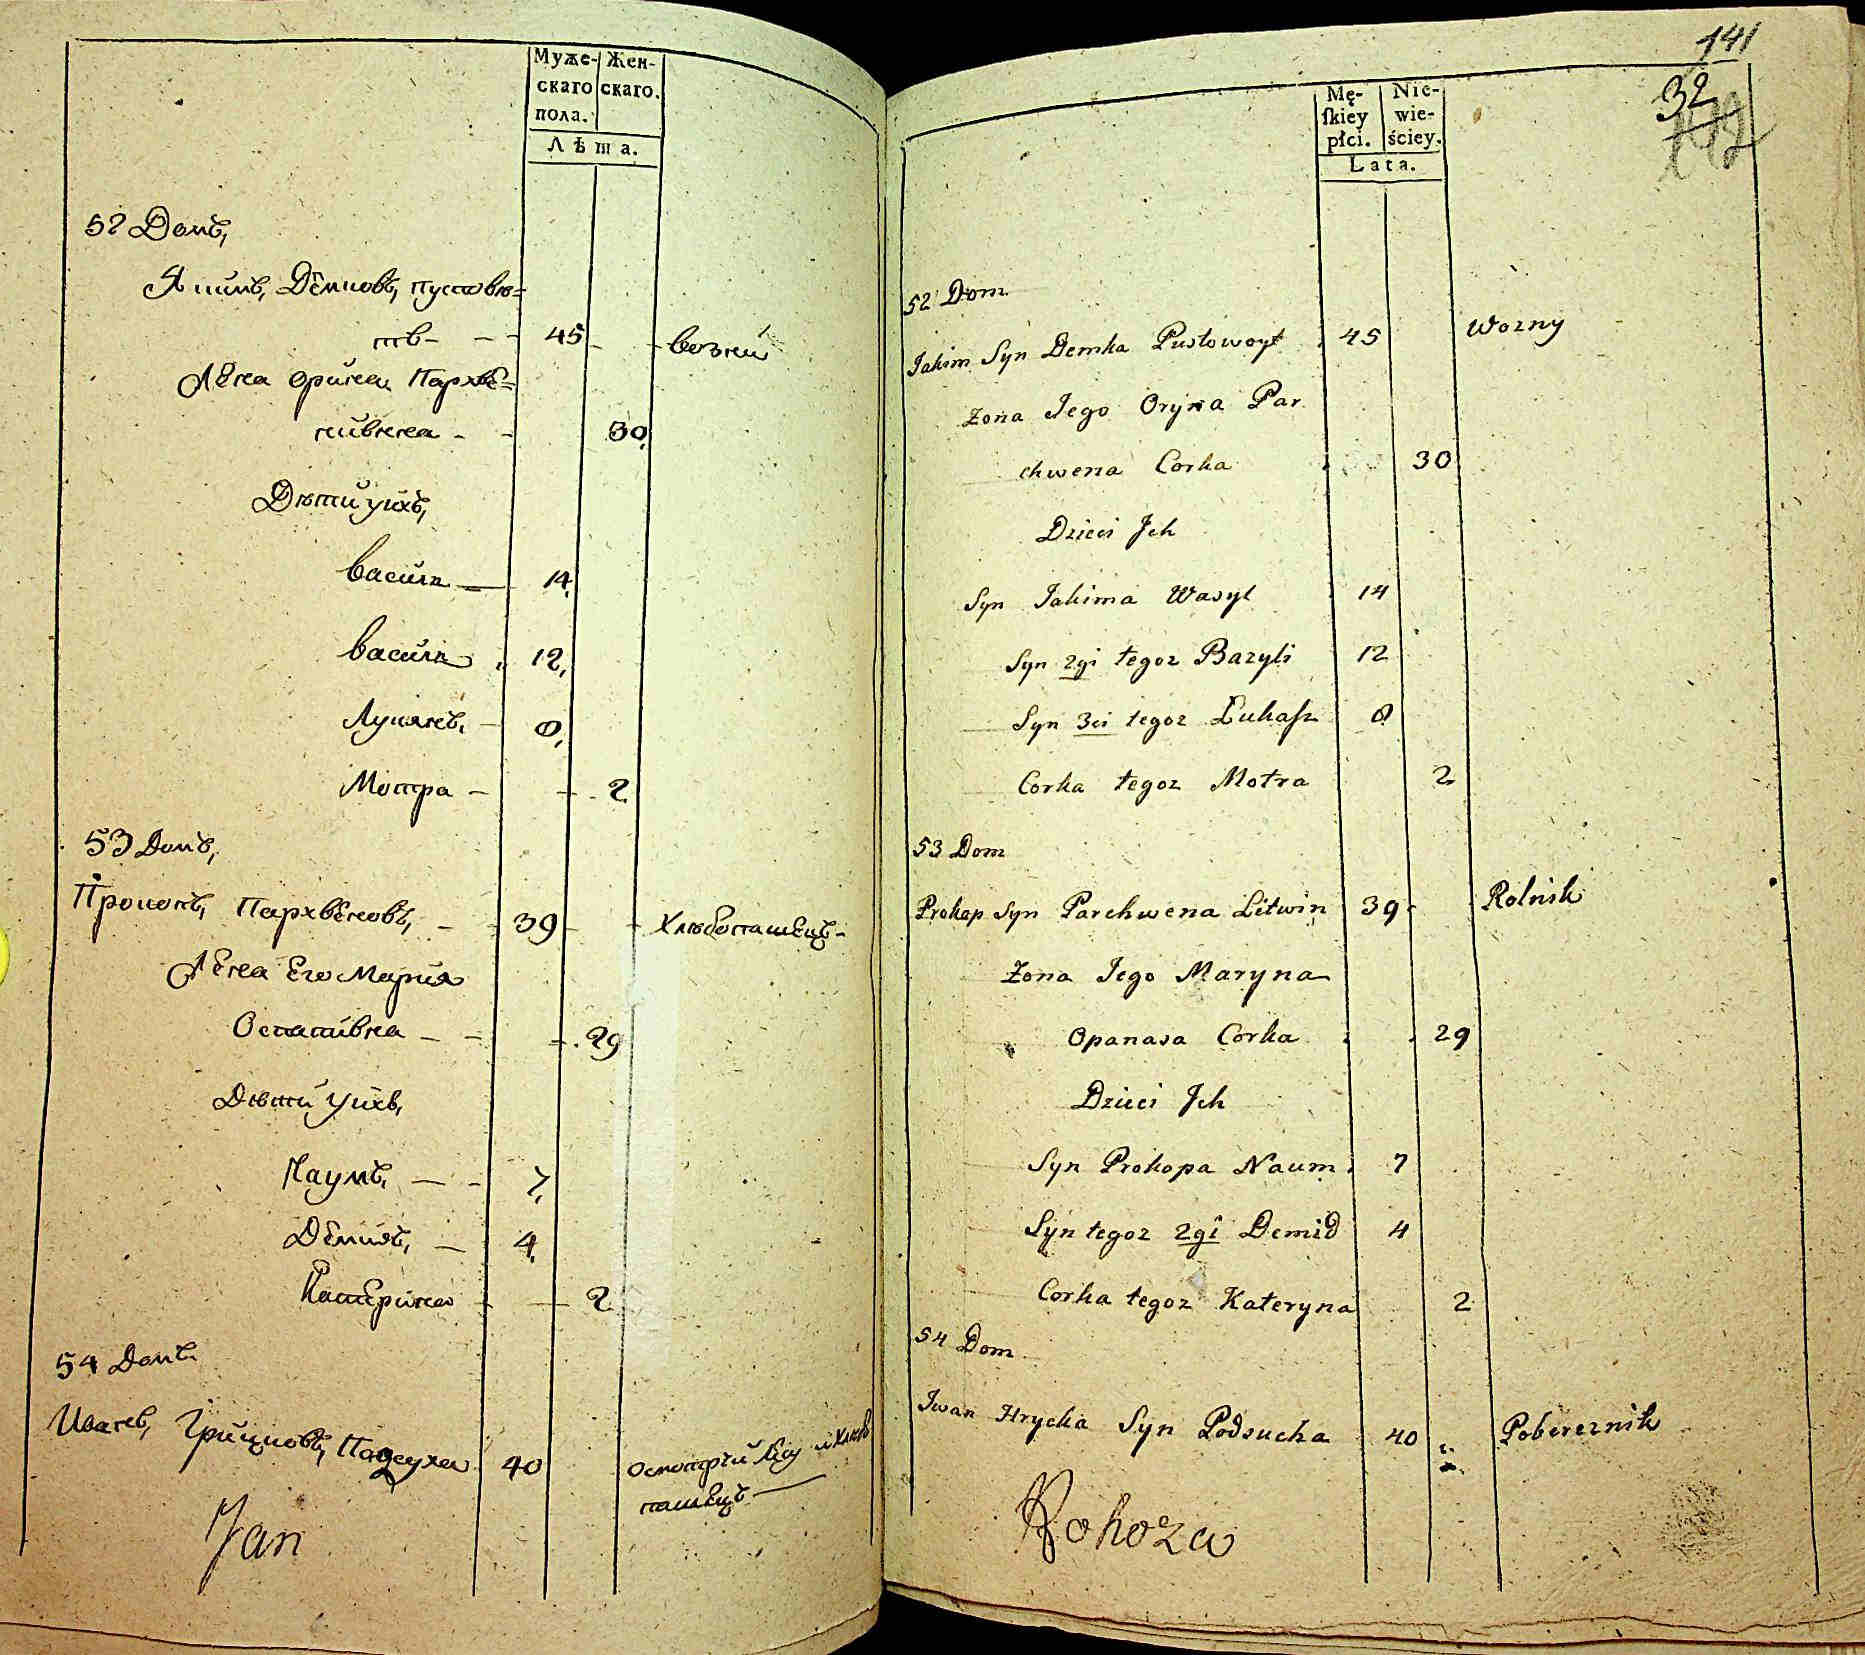 Муже- Жен-
скаго скаго.
пола.
Лѣта.
52 Домъ,
Якимъ, Демковъ, пустовой-
тъ - - 45 - - возний
Жена орина Пархве-
нивна - - 30,
Дѣти ихъ,
василь — 14,
василь 12,
Лукянъ, - 8,
Мотра - - 2
53 Домъ,
Прокопъ, Пархвеновъ, - 39 - - Хлѣбопашецъ-
Жена Его Мария
Остапивна - - 29
Дѣти ихъ,
Наумъ, - - 7,
Демидъ, - 4,
Катерина - - 2
54 Домъ
Иванъ, Грицковъ, Падсуха 40
пашецъ —
Jan
141
32
Mę- Nie-
ſkiey wie-
płci. ściey.
Lata.
52 Dom
Jakim Syn Demka Pustowoyt 45 Wozny
Zona Jego Oryna Par
chwena Corka 30
Dzieci Jch
Syn Jakima Wasyl 14
Syn 2gi tegoz Bazyli 12
Syn 3ci tegoz Łukaſz 8
Corka tegoz Motra 2
53 Dom
Prokop Syn Parchwena Litwin 39 Rolnik
Zona Jego Maryna
Opanasa Corka 29
Dzieci Jch
Syn Prokopa Naum 7
Syn tegoz 2gi Demid 4
Corka tegoz Kateryna 2
54 Dom
Jwan Hrycka Syn Podsucha 40 Pobereznik
Rohoza